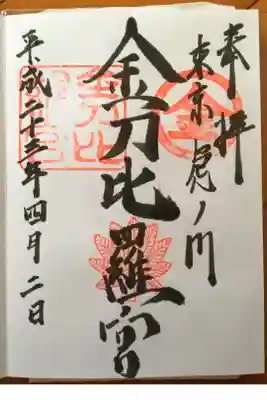 奉拝
東京虎ノ門
金
金刀比羅宮
平成二十三年四月二日